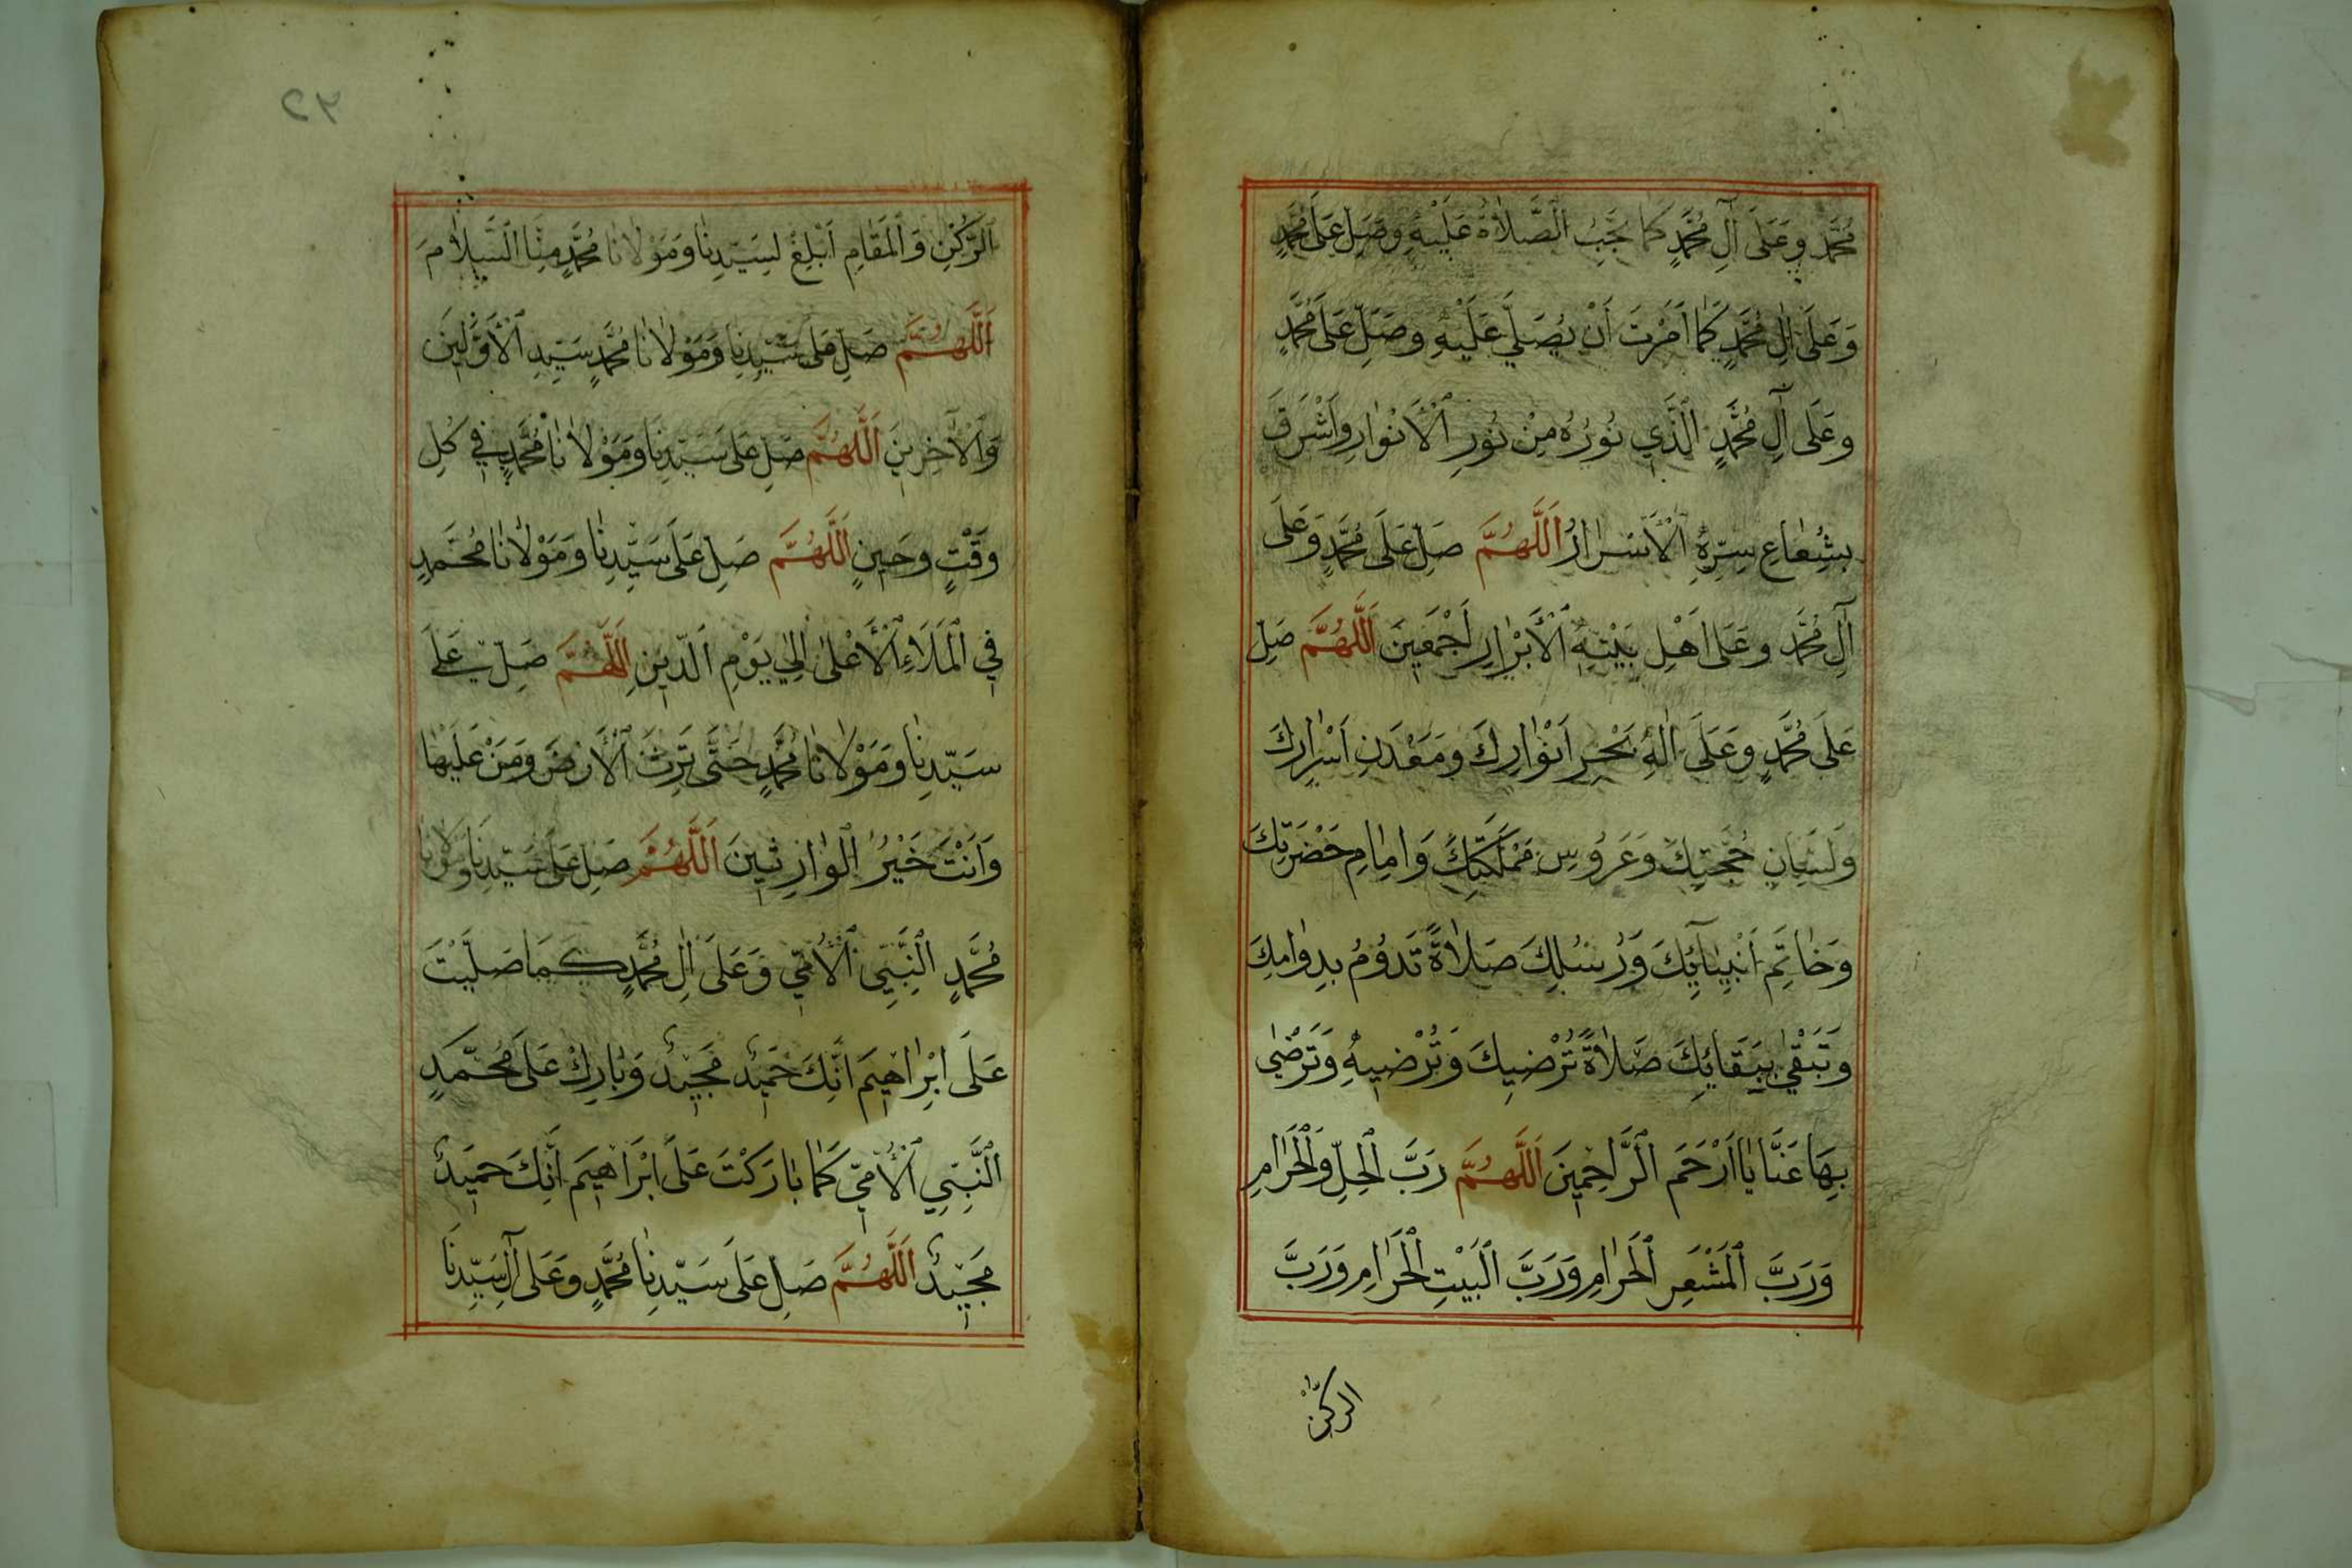 مُحَمَّدٍ وَعَلَى آلِ مُحَمَّدٍ كَمَا تَجِبُ الصَّلَاةُ عَلَيْهِ وَصَلِّ عَلَى مُحَمَّدٍ
وَعَلَى اٰلِ مُحَمَّدٍ كَمَا اَمَرْتَ اَنْ يُصَلَّيَ عَلَيْهِ وَصَلِّ عَلَى مُحَمَّدٍ
وَعَلَى آلِ مُحَمَّدٍ الَّذِي نُورُهُ مِنْ نُورِ الْاَنْوَارِ وَاَشْرَقَ
بِشُعَاعِ سِرِّهِ الْاَسْرَارُ اَللّٰهُمَّ صَلِّ عَلَى مُحَمَّدٍ وَعَلَى
آلِ مُحَمَّدٍ وَعَلَى اَهْلِ بَيْتِهِ الْاَبْرَارِ اَجْمَعِينَ اَللّٰهُمَّ صَلِّ
عَلَى مُحَمَّدٍ وَعَلَى اٰلِهِ بَحْرِ اَنْوَارِكَ وَمَعْدَنِ اَسْرَارِكَ
وَلِسَانِ حُجَّتِكَ وَعَرُوسِ مَمْلَكَتِكَ وَاِمَامِ حَضْرَتِكَ
وَخَاتَمِ اَنْبِيَآئِكَ وَرُسُلِكَ صَلَاةً تَدُوْمُ بِدَوَامِكَ
وَتَبْقٰى بِبَقَائِكَ صَلَاةً تُرْضِيكَ وَتُرْضِيهِ وَتَرْضٰى
بِهَا عَنَّا يَا اَرْحَمَ الرَّاحِمِينَ اَللّٰهُمَّ رَبَّ الْحِلِّ وَالْحَرَامِ
وَرَبَّ الْمَشْعَرِ الْحَرَامِ وَرَبَّ الْبَيْتِ الْحَرَامِ وَرَبَّ
الركن
٦٥
الرُّكْنِ وَالْمَقَامِ اَبْلِغْ لِسَيِّدِنَا وَمَوْلَانَا مُحَمَّدٍ مِنَّا السَّلَامَ
اَللّٰهُمَّ صَلِّ عَلَى سَيِّدِنَا وَمَوْلَانَا مُحَمَّدٍ سَيِّدِ الْاَوَّلِينَ
وَالْاٰخِرِينَ اَللّٰهُمَّ صَلِّ عَلَى سَيِّدِنَا وَمَوْلَانَا مُحَمَّدٍ فِي كُلِّ
وَقْتٍ وَحِينٍ اَللّٰهُمَّ صَلِّ عَلَى سَيِّدِنَا وَمَوْلَانَا مُحَمَّدٍ
فِي الْمَلَاءِ الْاَعْلٰى اِلٰي يَوْمِ الدِّينِ اَللّٰهُمَّ صَلِّ عَلَى
سَيِّدِنَا وَمَوْلَانَا مُحَمَّدٍ حَتَّى تَرِثَ الْاَرْضَ وَمَنْ عَلَيْهَا
وَاَنْتَ خَيْرُ الْوَارِثِينَ اَللّٰهُمَّ صَلِّ عَلَى سَيِّدِنَا وَمَوْلَانَا
مُحَمَّدٍ النَّبِيِّ الْاُمِّيِّ وَعَلَى اٰلِ مُحَمَّدٍ كَمَا صَلَّيْتَ
عَلَى اِبْرَاهِيمَ اِنَّكَ حَمِيدٌ مَجِيدٌ وَبَارِكْ عَلَى مُحَمَّدٍ
النَّبِيِّ الْاُمِّيِّ كَمَا بَارَكْتَ عَلَى اِبْرَاهِيمَ اِنَّكَ حَمِيدٌ
مَجِيدٌ اَللّٰهُمَّ صَلِّ عَلَى سَيِّدِنَا مُحَمَّدٍ وَعَلَى آلِ سَيِّدِنَا